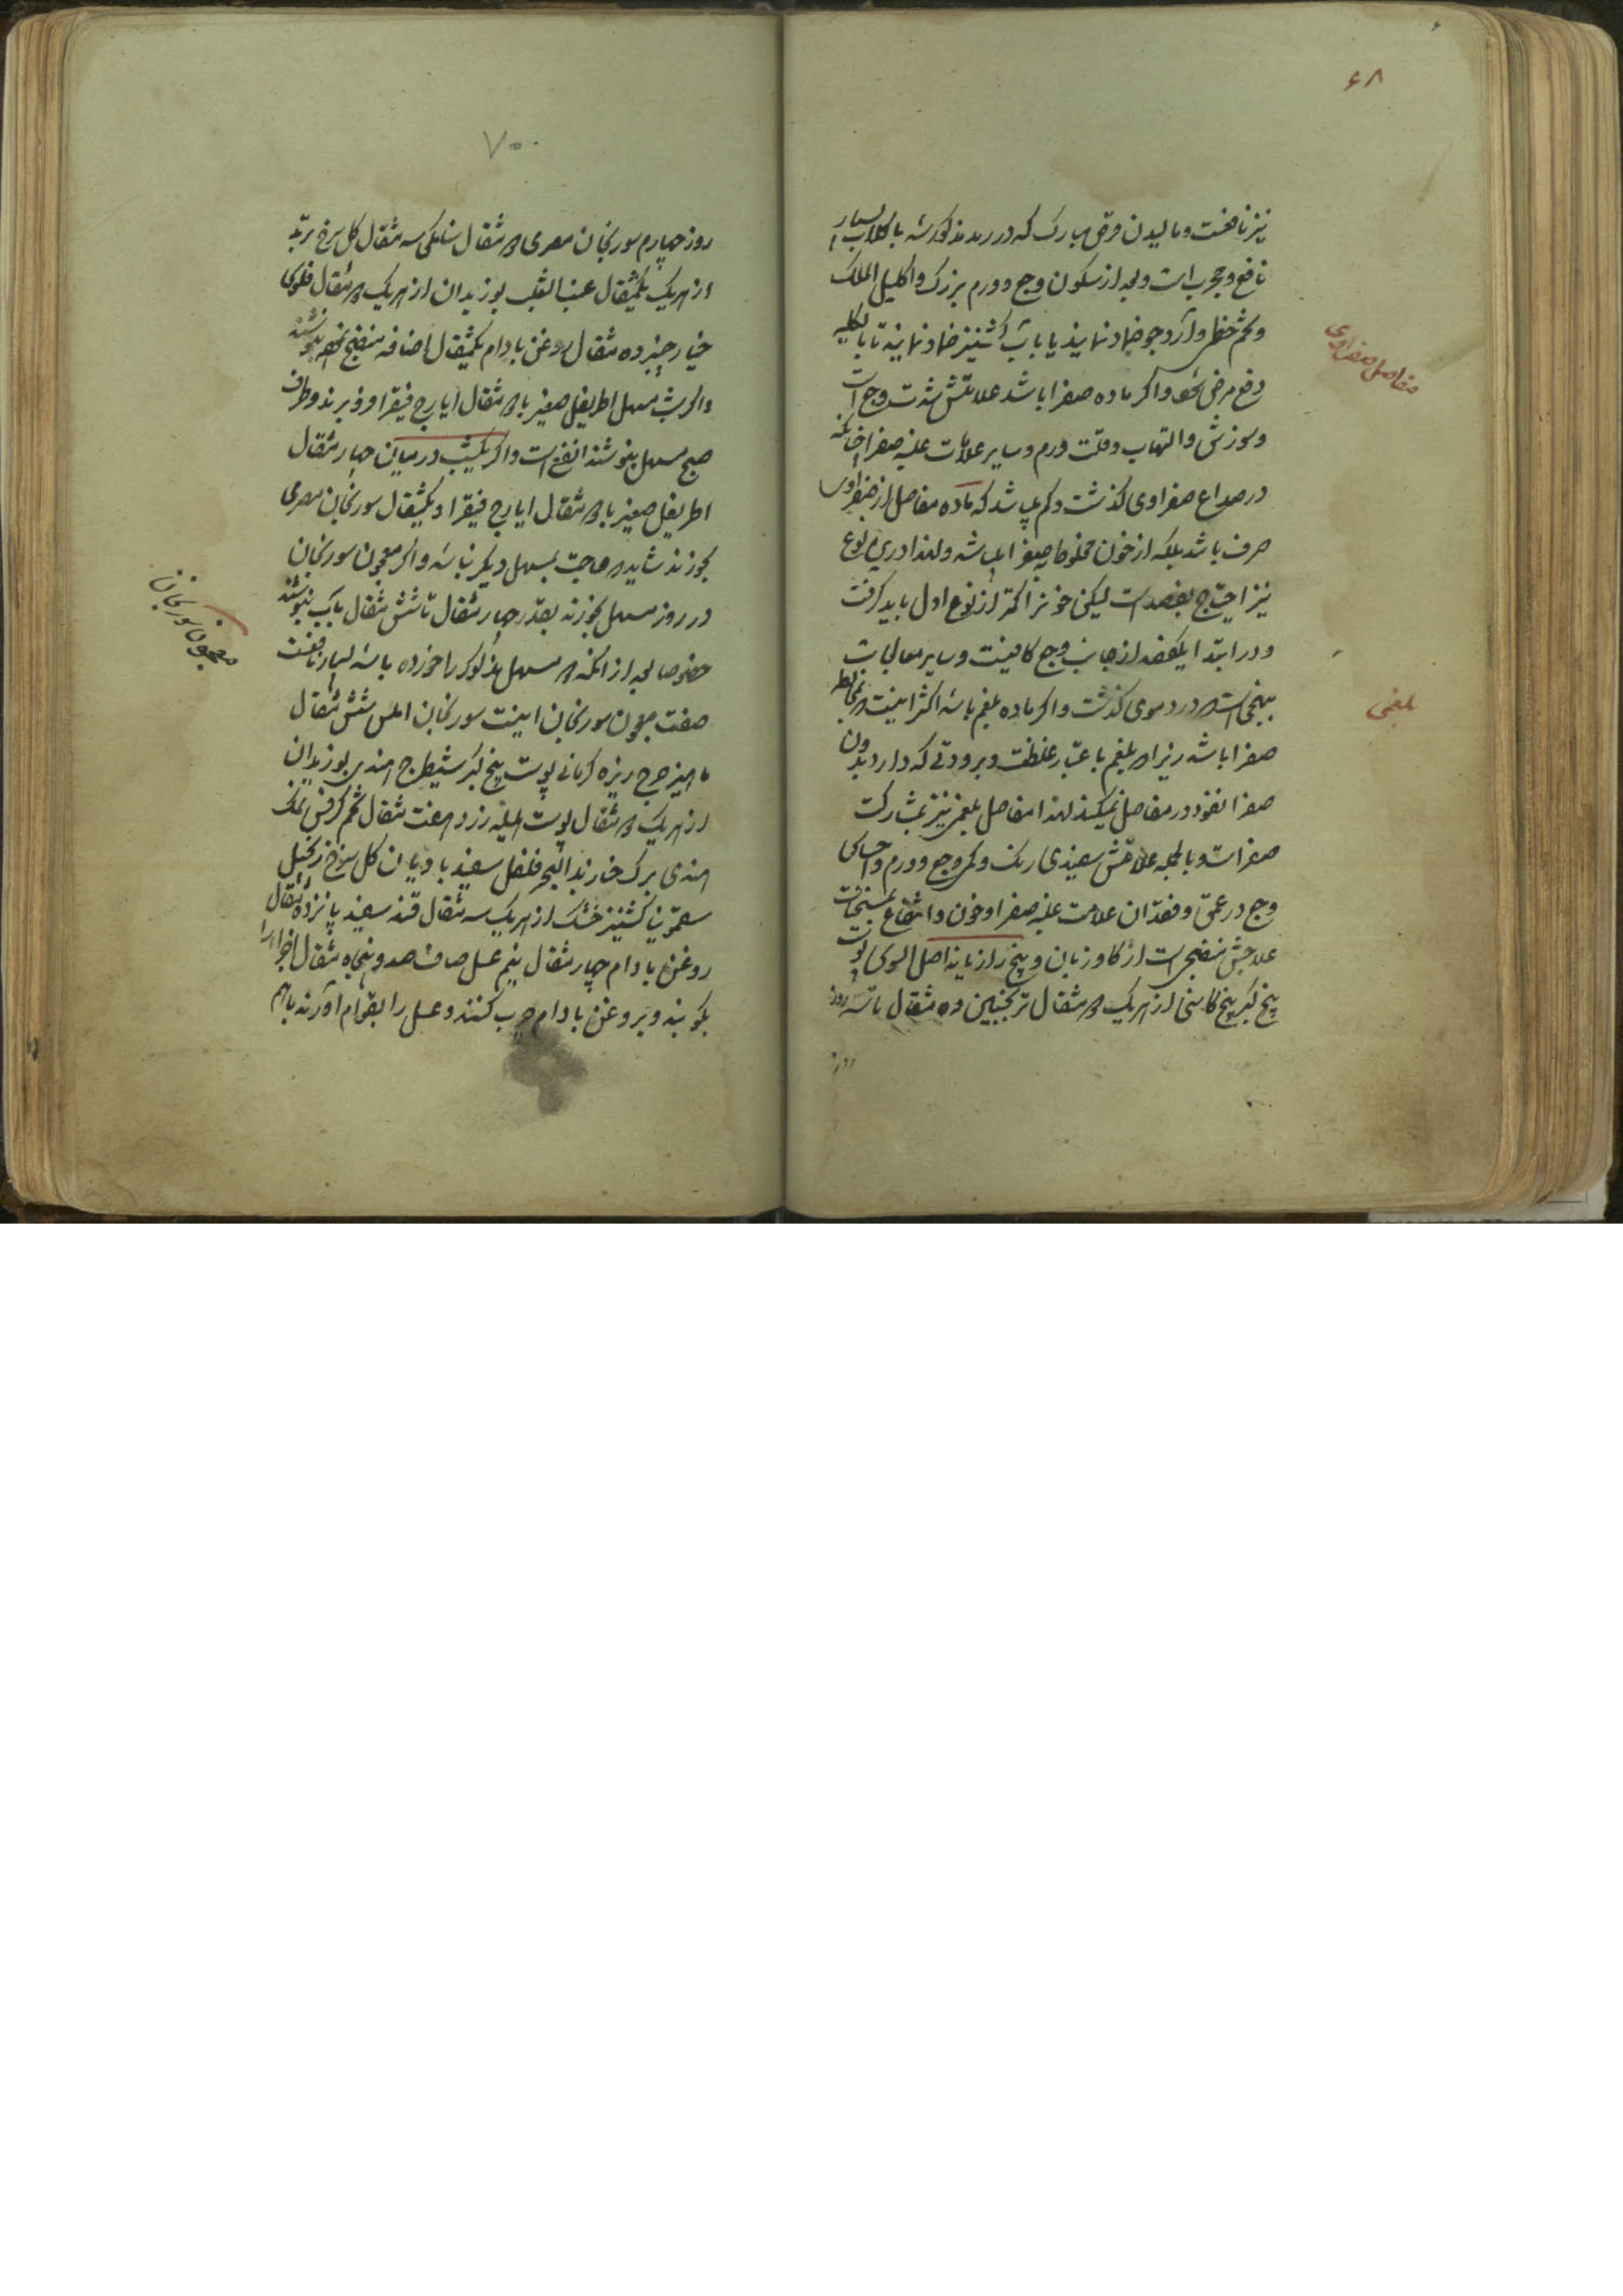 ۶۸
نیز نافعست و مالیدن قرص مبارک که در رمد مذکور شد با کلاب بسیار
نافع و مجرب است و بعد از سکون وجع و ورم بزرک و اکلیل الملک
و تخم خطمی و آرد جو ضماد نمایند یا باب کشنیز ضماد نمایند تا بالکلیه
دفع مرض شود و اکر ماده صفرا باشد علامتش شدت وجع است
و سوزش و التهاب و قلت ورم و سایر علامات غلبه صفرا چنانکه
در صداع صفراوی کذشت و کم باشد که ماده مفاصل از صفراوی
صرف باشد بلکه از خون مخلوط بصفرا باشد و لهذا درین نوع
نیز احتیاج بفصد است لیکن خونرا کمتر از نوع اول باید کرفت
و در ابتدا یکفصد از جانب وجع کافیست و سایر معالجات
بنحوی است که در دموی کذشت و اکر ماده بلغم باشد اکثر اینست که مخالط
صفرا باشد زیرا که بلغم باعتبار غلظت و برودتی که دارد بدون
صفرا نفوذ در مفاصل نمیکند لهذا مفاصل بلغمی نیز بمشارکت
صفراست و بالجمله علامتش سفیدی رنک و کمی وجع و ورم و احساس
وجع در عمق و فقدان علامت غلبه صفرا و خون و انتفاع بمسخنات
علاجش منضجی است از کاوزبان و بیخ رازیانه اصل السوس پوست
بیخ کبر بیخ کاسنی از هریک دو مثقال ترنجبین ده مثقال تا سه روز
روز
مفاصل صفراوی
بلغمی
۷۰
روز چهارم سورنجان مصری دو مثقال سنامکی سه مثقال کل سرخ تربد
از هریک یکمثقال عنب الثعلب بوزیدان از هریک دو مثقال فلوس
خیارچنبر ده مثقال روغن بادام یکمثقال اضافه منضج نموده بنوشند
و اکر شب مسهل اطریفل صغیر با دو مثقال ایارج فیقرا فرو برند و طرف
صبح مسهل بنوشند انفع است و اکر یکشب در میان چهار مثقال
اطریفل صغیر با دو مثقال ایارج فیقرا و یکمثقال سورنجان مصری
بخورند شاید که حاجت بمسهل دیکر نباشد و اکر معجون سورنجان
در روز مسهل بخورند بقدر چهار مثقال تا شش مثقال باب بنوشند
خصوصا بعد از آنکه دو مسهل مذکور را خورده باشد بسیار نافعست
صفت معجون سورنجان اینست سورنجان املس شش مثقال
ماهیزهرج زیره کرمانی پوست بیخ کبر شیطرج هندی بوزیدان
از هریک دو مثقال پوست هلیله زرد هفت مثقال تخم کرفس نمک
هندی برک حنا زبد البحر فلفل سفید بادیان کل سرخ زنجبیل
سقمونیا کشنیز خشک از هریک سه مثقال قند سفید پانزده مثقال
روغن بادام چهار مثقال نیم عسل صاف صد و پنجاه مثقال اجزا را
بکوبند و بروغن بادام چرب کنند و عسل را بقوام آورند باهم
معجون سورنجان